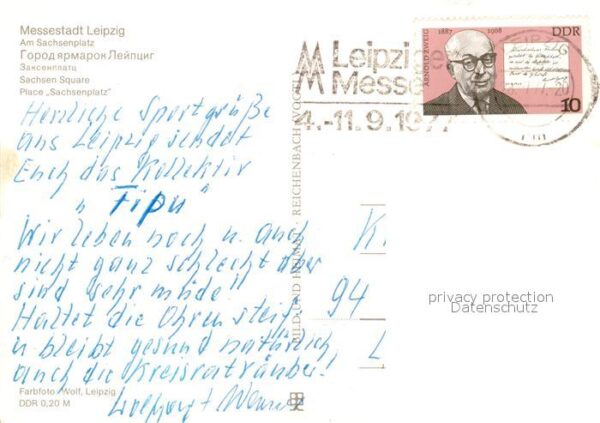 Messestadt Leipzig
Am Sachsenplatz
Город ярмарок Лейпциг
Заксенплатц
Sachsen Square
Place „Sachsenplatz"
Herzliche Sportgrüße
aus Leipzig sendet
Euch das Kollektiv
„Fipu"
Wir leben noch u. auch
nicht ganz schlecht aber
sind sehr müde"
Haltet die Ohren steif
u bleibt gesund natürlich
auch die
Wolfgang +
Farbfoto: Wolf, Leipzig
DDR 0,20 M
BILD UND HEIMAT REICHENBACH (VOGTL
Leipzi
Messe
4.-11.9.197
ARNOLD ZWEIG
1887 1968
DDR
10
K
94
L
privacy protection
Datenschutz